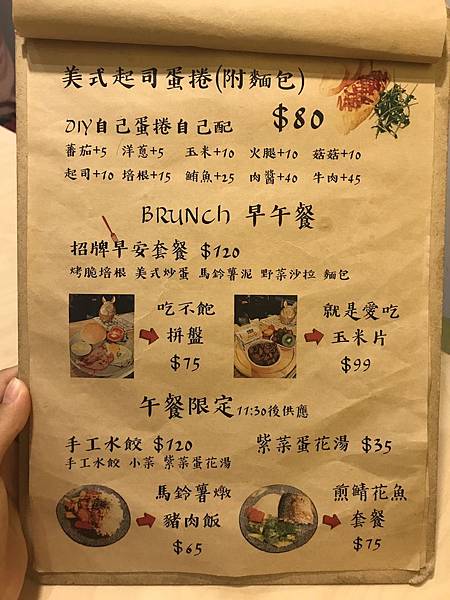 美式起司蛋捲(附麵包)
DIY自己蛋捲自己配 $80
蕃茄+5 洋蔥+5 玉米+10 火腿+10 菇菇+10
起司+10 培根+15 鮪魚+25 肉醬+40 牛肉+45
BRUNCh 早午餐
招牌早安套餐 $120
烤脆培根 美式炒蛋 馬鈴薯泥 野菜沙拉 麵包
吃不飽
拼盤
$75
就是愛吃
玉米片
$99
午餐限定11:30後供應
手工水餃 $120 紫菜蛋花湯 $35
手工水餃 小菜 紫菜蛋花湯
馬鈴薯燉
豬肉飯
$65
煎鯖花魚
套餐
$75